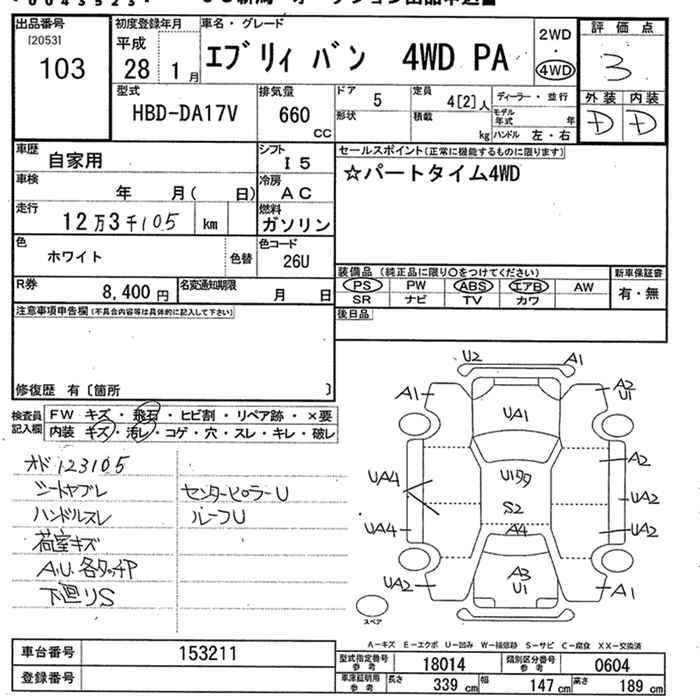 出品番号
I20531
103
初度登録年月
平成
28 1月
車名・グレード
エブリィ バン 4WD PA
2WD
・
4WD
評価点
3
外装 内装
D D
型式
HBD-DA17V
排気量
660
CC
ドア
5
定員
4[2]人
形状
積載
kg
ディーラー・並行
モデル年式 年
ハンドル 左・右
車歴
自家用
シフト
I5
車検
年 月( 日)
冷房
AC
走行
12万3千105 km
燃料
ガソリン
色
ホワイト
色替
色コード
26U
R券
8,400円
名変通知期限
月 日
セールスポイント(正常に機能するものに限ります)
☆パートタイム4WD
装備品(純正品に限り○をつけてください)
PS PW ABS エアB AW
SR ナビ TV カワ
新車保証書
有・無
後日品
注意事項申告欄(不具合内容等は具体的に記入して下さい)
修復歴 有〔箇所 〕
検査員
記入欄
FW キズ・飛石・ヒビ割・リペア跡・×要
内装 キズ・汚レ・コゲ・穴・スレ・キレ・破レ
オド123105
シートヤブレ
ハンドルスレ
荷室キズ
A.U.各タッチP
下廻りS
センターピラーU
ルーフU
U2 A1
A1 A2
U1
UA1
A2
UA4 U1タタ
S2 UA2
UA4 A4 UA2
UA2 A3
U1 A1
スペア
A-キズ E-エクボ U-凹み W-補修跡 S-サビ C-腐食 XX-交換済
車台番号
153211
登録番号
型式指定番号
参考
18014
類別区分番号
参考
0604
車庫証明用
参考
長さ 339 cm 幅 147 cm 高さ 189 cm